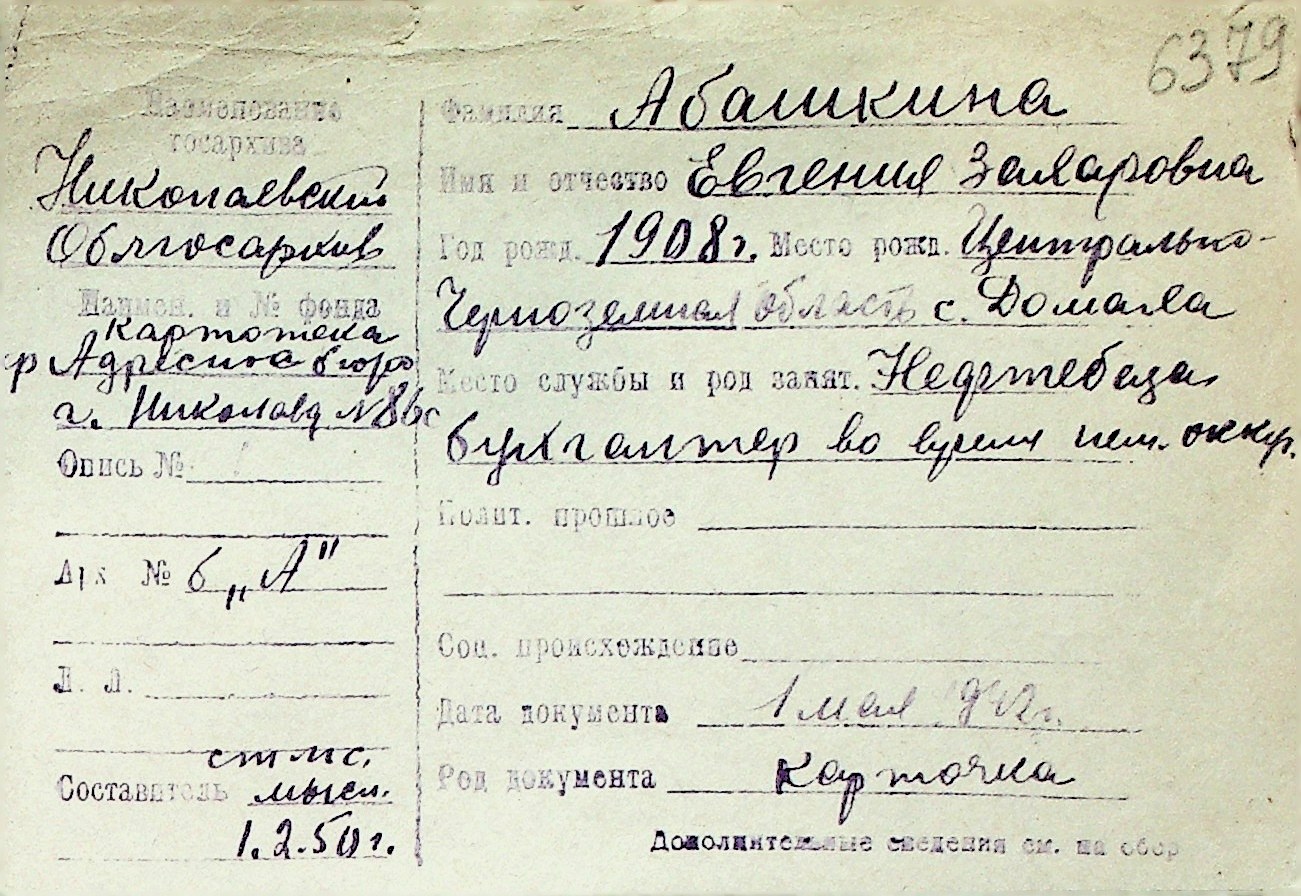 6379
Наименование
госархива
Николаевский
Облгосархив
Наимен. и № фонда
картотека
р Адресного бюро
г. Николаев №86с
Опись №
Арх №6 „А"
Л. Л.
стнс.
Составитель мысл.
1.2.50 г.
Фамилия Абашкина
Имя и отчество Евгения Захаровна
Год рожд. 1908 г. Место рожд. Центрально-
Черноземная область с. Домаха
Место службы и род занят. Нефтебаза
бухгалтер во время нем. оккур.
Полит. прошлое
Соц. происхождение
Дата документа 1 мая 1942 г.
Род документа карточка
Дополнительные сведения см. на обор